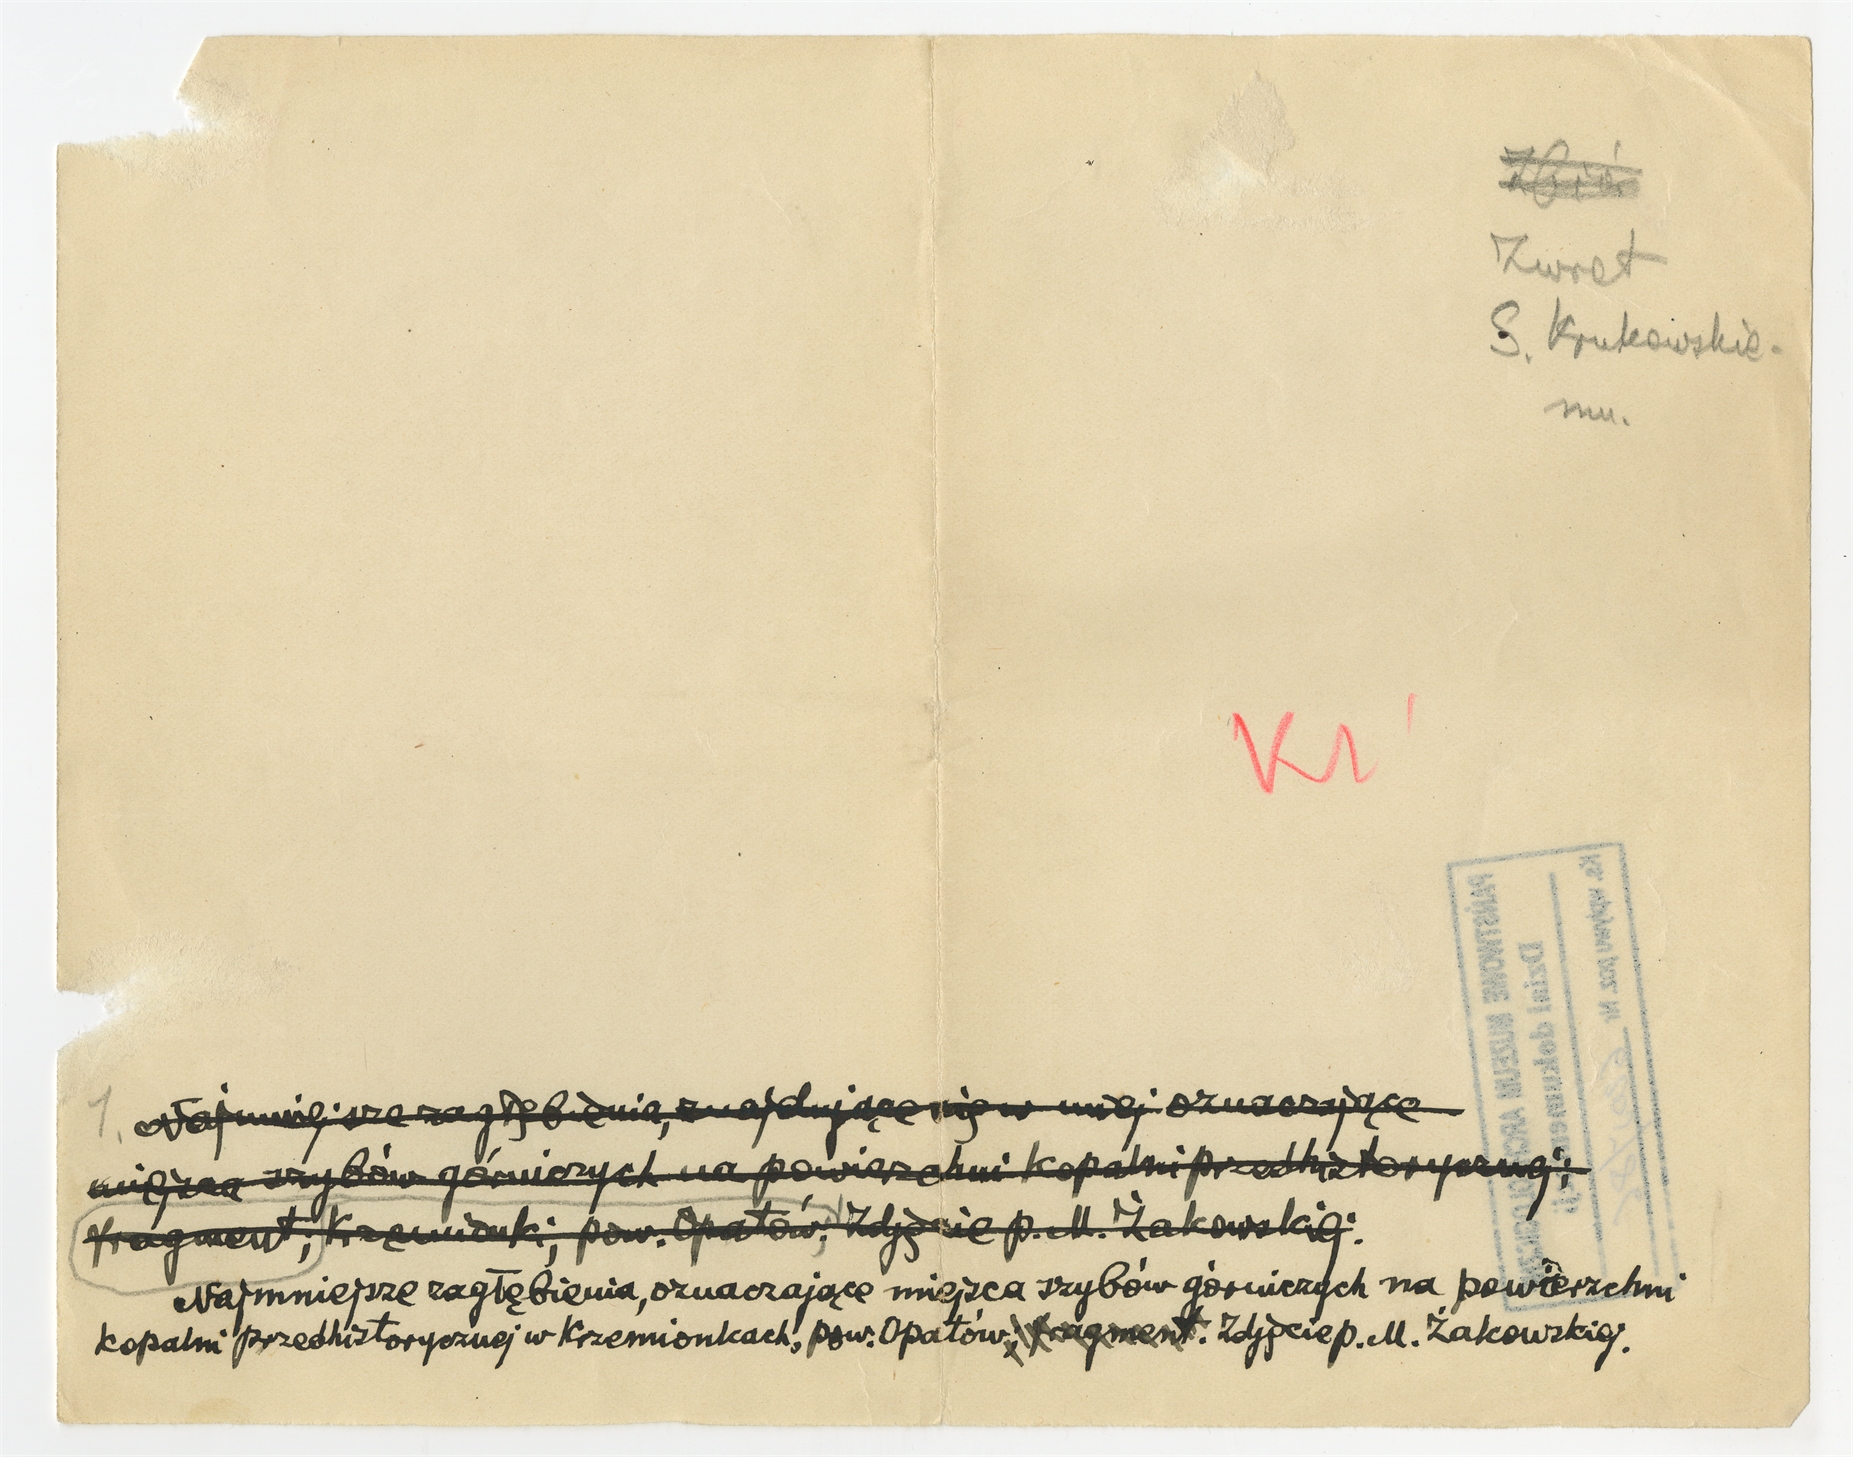 Zbiór
Zwrot
S. Krukowskie-
mu.
Kr
PAŃSTWOWE MUZEUM ARCHEOLOGICZNE
Dział dokumentacji
Ks. wpływu poz. Nr
1. Najmniejsze zagłębienia, znajdujące się w niej oznaczające
miejsca szybów górniczych na powierzchni kopalni przedhistorycznej;
fragment; Krzemionki, pow. Opatów. Zdjęcie p. M. Żakowskiej.
Najmniejsze zagłębienia, oznaczające miejsca szybów górniczych na powierzchni
kopalni przedhistorycznej w Krzemionkach, pow. Opatów; fragment. Zdjęcie p. M. Żakowskiej.